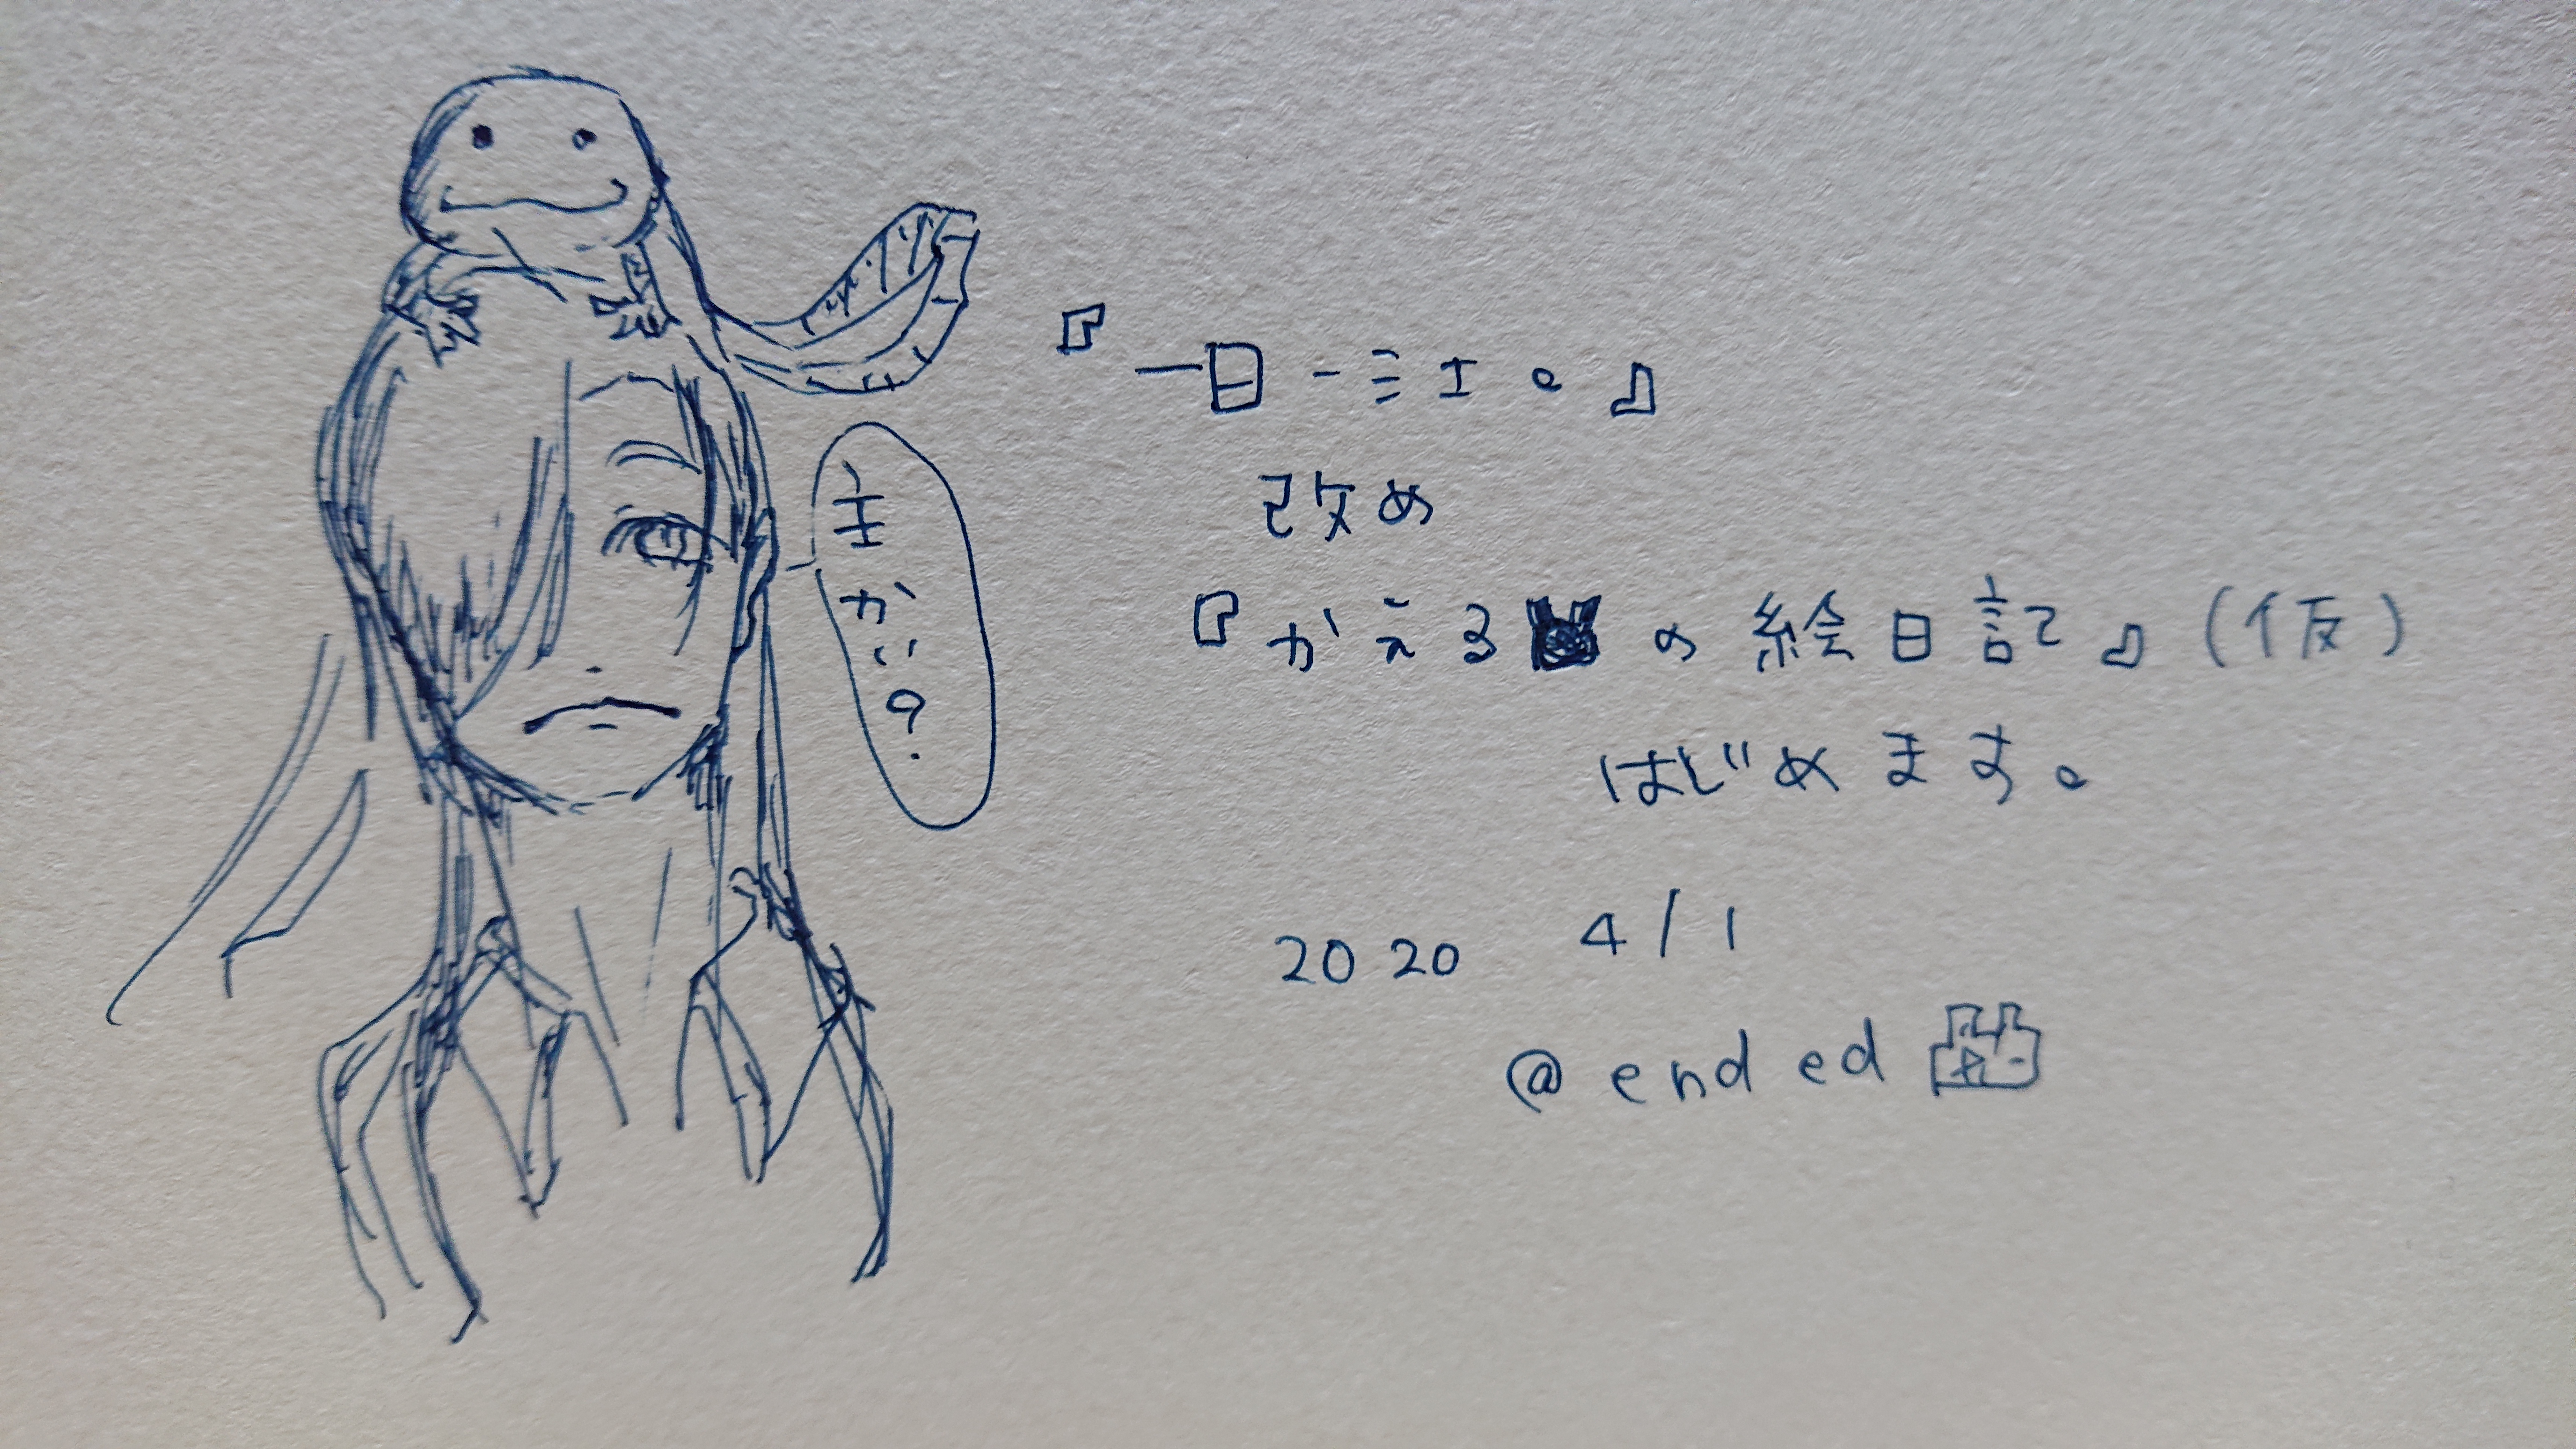 『一日一ミエ。』
改め
『かえるの絵日記』(仮)
はじめます。
主かい?
2020 4/1
@ended